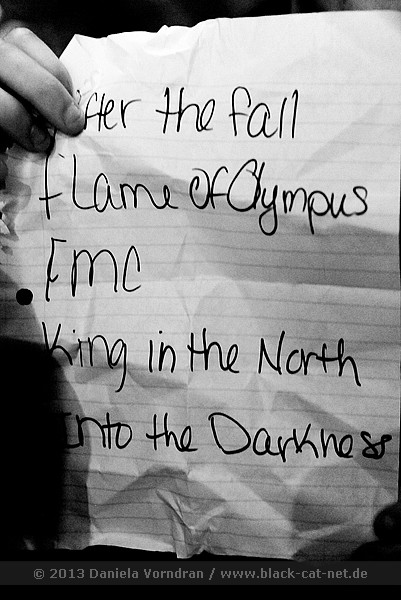 After the fall
Flame Of Olympus
FMC
King in the North
Into the Darkness
© 2013 Daniela Vorndran / www.black-cat-net.de